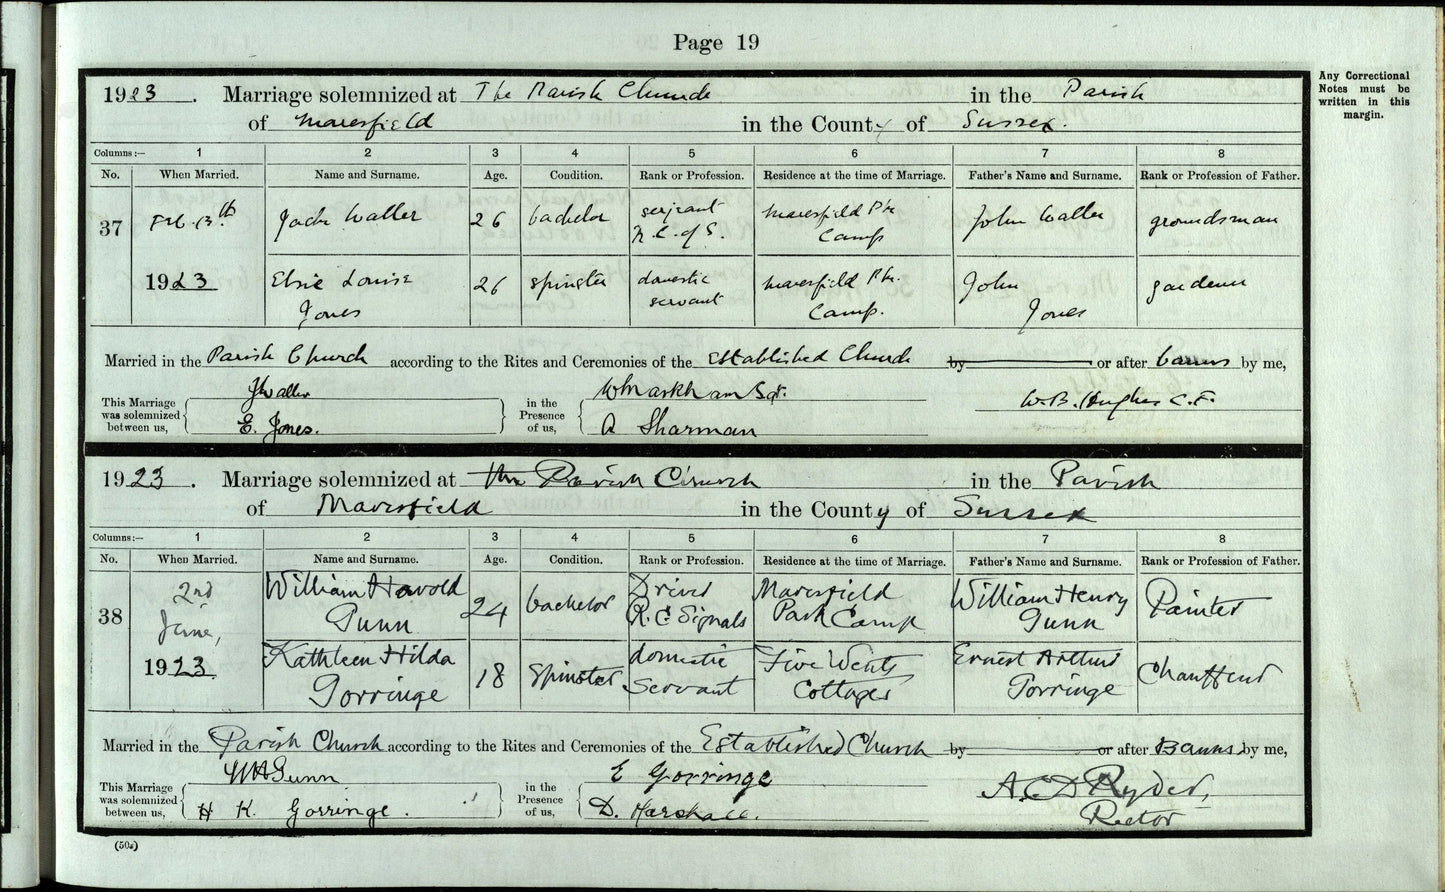 Page 19
Any Correctional
Notes must be
written in this
margin.
1923. Marriage solemnized at The Parish Church in the Parish
of Maresfield in the County of Sussex.
Columns:— 1 2 3 4 5 6 7 8
No. When Married. Name and Surname. Age. Condition. Rank or Profession. Residence at the time of Marriage. Father's Name and Surname. Rank or Profession of Father.
37 Feb. 13th Jack Waller 26 bachelor serjeant R.C. of S. Maresfield Pk. Camp John Waller groundsman
1923 Elsie Louise Jones 26 spinster domestic servant Maresfield Pk. Camp. John Jones gardener
Married in the Parish Church according to the Rites and Ceremonies of the Established Church by or after banns by me,
This Marriage was solemnized between us, JWaller E. Jones. in the Presence of us, WMarkham Sgt. A Sharman W.B. Hughes C.F.
1923. Marriage solemnized at the Parish Church in the Parish
of Maresfield in the County of Sussex
Columns:— 1 2 3 4 5 6 7 8
No. When Married. Name and Surname. Age. Condition. Rank or Profession. Residence at the time of Marriage. Father's Name and Surname. Rank or Profession of Father.
38 2nd June, William Harold Gunn 24 bachelor Driver R.C. Signals Maresfield Park Camp William Henry Gunn Painter
1923 Kathleen Hilda Gorringe 18 Spinster domestic Servant Five Wents Cottages Ernest Arthur Gorringe Chauffeur
Married in the Parish Church according to the Rites and Ceremonies of the Established Church by or after Banns by me,
This Marriage was solemnized between us, WHGunn H K Gorringe. in the Presence of us, E Gorringe D. Marshall. A.C.D Ryder, Rector